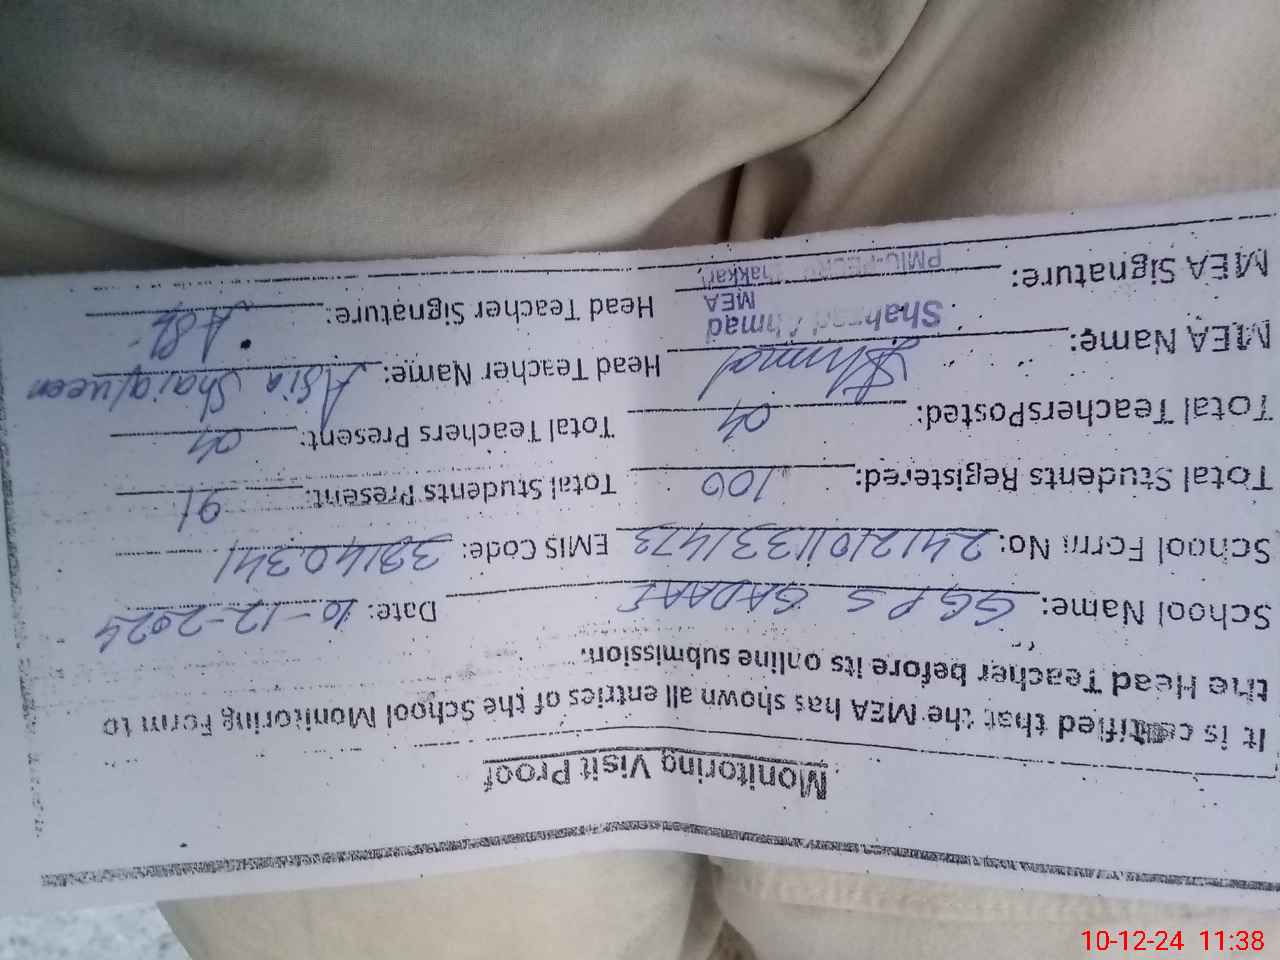 Monitoring Visit Proof
It is certified that the MEA has shown all entries of the School Monitoring Form to
the Head Teacher before its online submission.
School Name: GGPS GADAAI Date: 10-12-2024
School Form No: 2412101133 1473 EMIS Code: 32140341
Total Students Registered: 100 Total Students Present: 91
Total TeachersPosted: 04 Total Teachers Present: 04
MEA Name: Ahmad Head Teacher Name: Asia
MEA Signature: Ahmad MEA Head Teacher Signature:
10-12-24 11:38